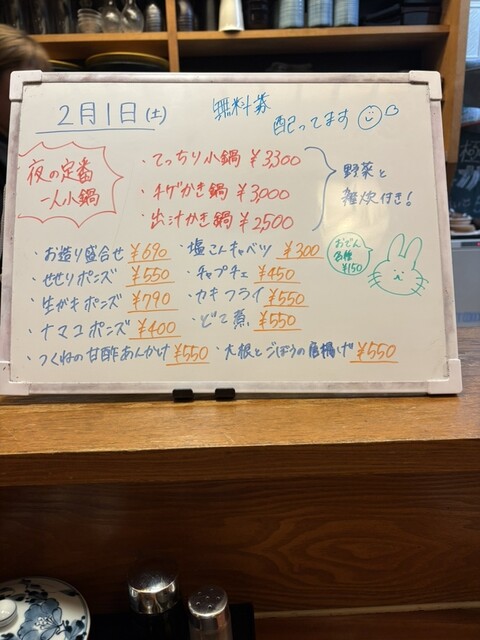 2月1日(土)
無料券
配ってます
夜の定番
一人小鍋
・てっちり小鍋 ¥3,300
・チゲかき鍋 ¥3,000
・出汁かき鍋 ¥2,500
野菜と
雑炊付き!
・お造り盛合せ ¥690
・せせりポンズ ¥550
・生がきポンズ ¥790
・ナマコポンズ ¥400
・つくねの甘酢あんかけ ¥550
・塩こんキャベツ ¥300
・チャプチェ ¥450
・カキフライ ¥550
・どて煮 ¥550
・大根とごぼうの唐揚げ ¥550
おでん
各種
¥150